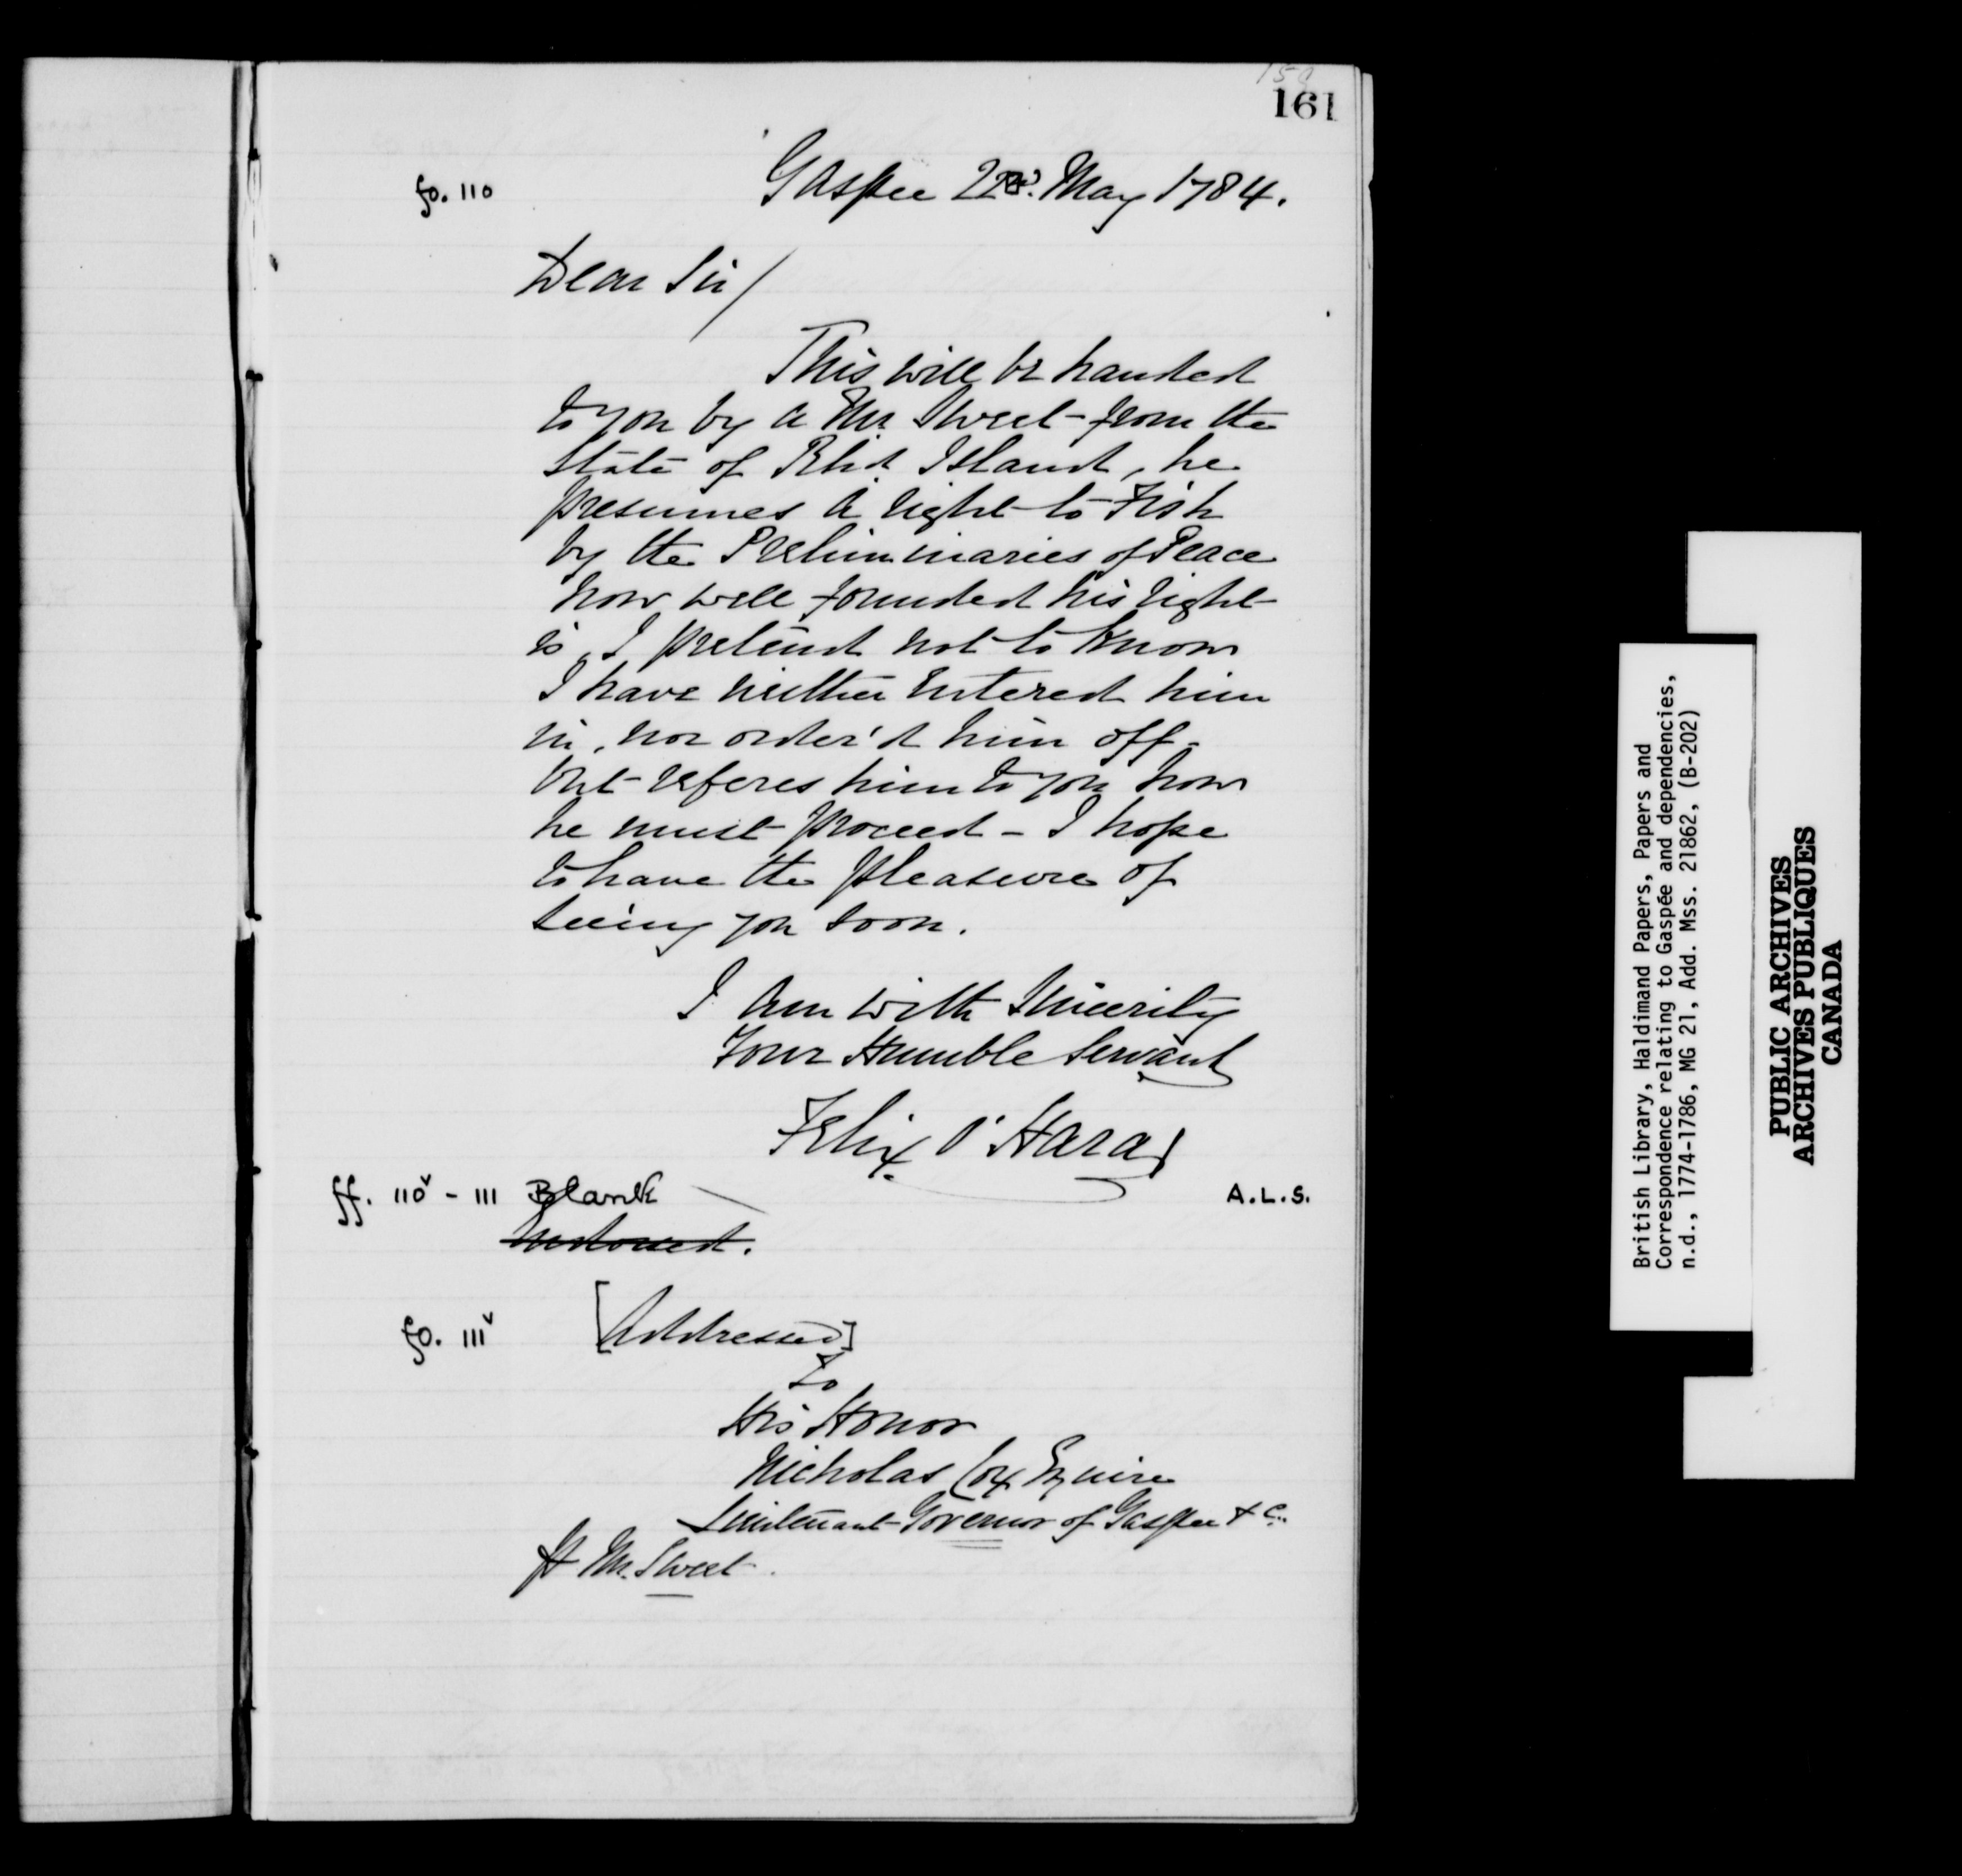 161
fo. 110
Gaspee 22d. May 1784.
Dear Sir/
This will be handed
to you by a Mr Sweet from the
State of Rhd Island, he
presumes a right to Fish
by the Preliminaries of Peace
how well founded his right
is, I pretend not to know
I have neither Entered him
in, nor order'd him off -
but referes him to you how
he must proceed - I hope
to have the pleasure of
seeing you soon.
I am with Sincerity
Your Humble Servant
Felix O'Hara
A.L.S.
ff. 110v - 111 Blank
fo. 111v
[Addressed]
To
His Honor
Nicholas Cox Esquire
Lieutenant Governor of Gaspee & c.
Mr. Sweet
British Library, Haldimand Papers, Papers and
Correspondence relating to Gaspée and dependencies,
n.d., 1774-1786, MG 21, Add. Mss. 21862, (B-202)
PUBLIC ARCHIVES
ARCHIVES PUBLIQUES
CANADA